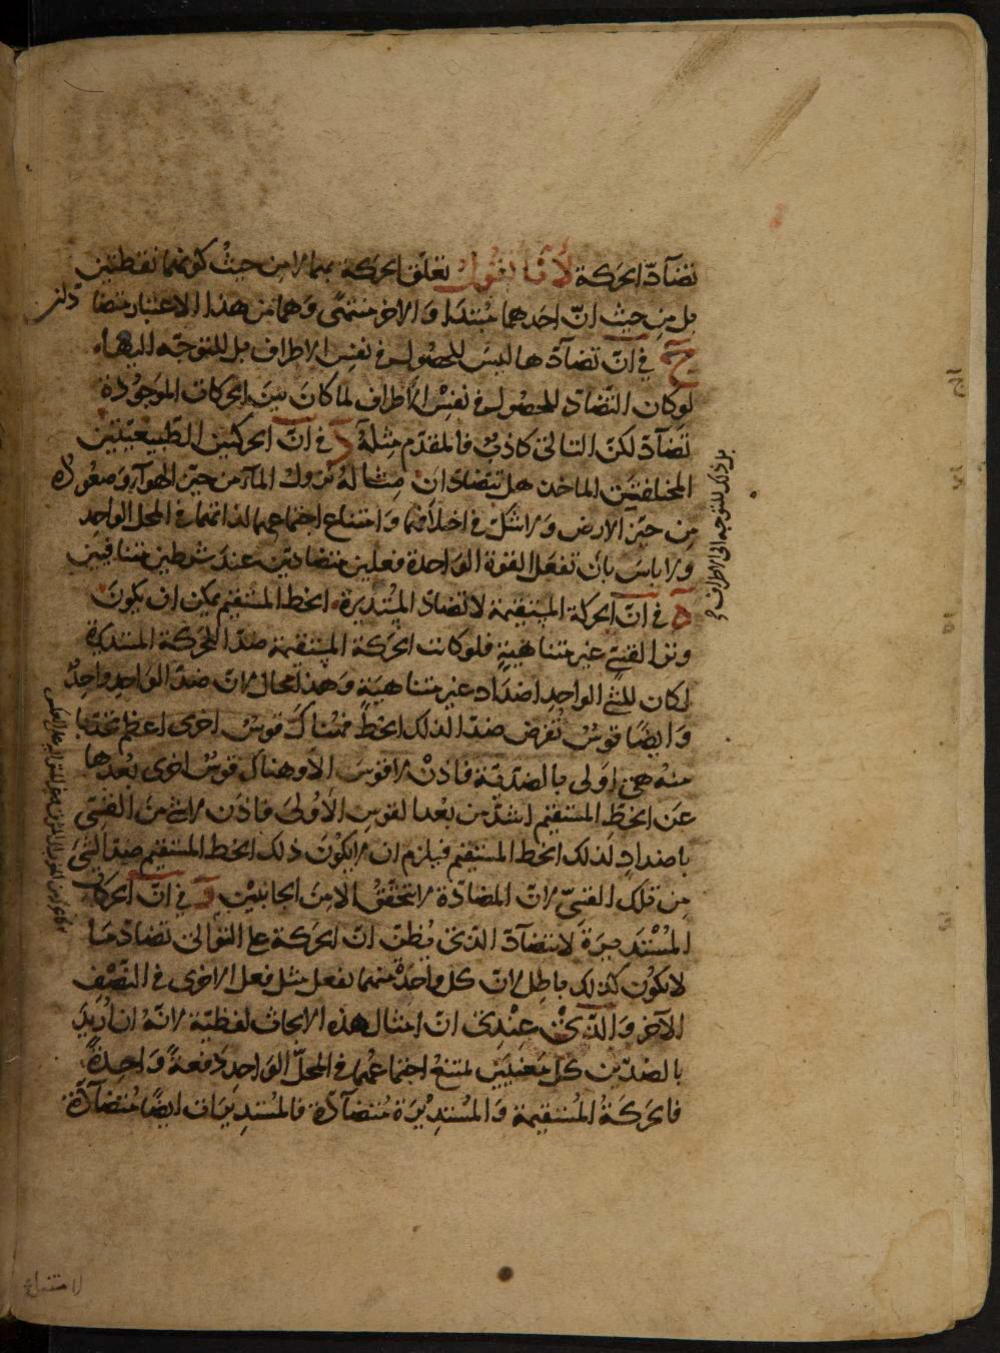 تضآدّ الحركة لأنا نقول تعلق الحركة بهما لا من حيث كونهما نقطتين
بل من حيث انّ احدهما مبتدا والاخر منتهًى وهما من هذا الاعتبار متضا دان
ج في انّ تضآدّها ليس للحصول في نفس الاطراف بل للتوجّه اليها
لو كان التّضادّ للحصول في نفس الأطراف لما كان بين الحركات الموجودة
تضآدّ لكنّ التالي كاذبٌ فالمقدّم مثله د في انّ الحركتين الطّبيعيّتين
المختلفتين الماخذ هل تتضادان مثاله نزول المآء من حيّز الهوآء وصعوده
من حيّز الارض ولا شكّ في اختلافهما وامتناع اجتماعهما لذاتهما في المحل الواحد
ولا باس بان تفعل القوة الواحدة فعلين متضادّين عند شرطين متنافيين
ه في انّ الحركة المستقيمة لا تضادّ المستديرة الخط المستقيم يمكن ان يكون
وتر القسيّ غير متناهيةٍ فلو كانت الحركة المستقيمة ضدّا للحركة المستديرة
لكان للشئ الواحد اضداد غير متناهية وهذا محال لانّ ضدّ الواحد واحدٌ
وايضًا قوسٌ تُفرض ضدّا لذلك الخط فهناك قوسٌ اخرى اعظم تحدّبا
منه هي اولى بالضدّيّة فاذنْ لا قوس الّا وهناك قوسٌ اخرى بُعدها
عن الخطّ المستقيم اشدّ من بعد القوس الأولى فاذن لا شئ من القسيّ
باضدادٍ لذلك الخط المستقيم فيلزم ان لا يكون ذلك الخط المستقيم ضدّا لشئ
من تلك القسيّ لانّ المضادّة لا تتحقق الا من الجانبين و في انّ الحركات
المستديرة لا تتضآدّ الذي يُظنّ انّ الحركة على التوالي تضادّ ما
لا يكون كذلك باطل لانّ كل واحدة منهما تفعل مثل فعل الاخرى في النّصف
الآخر والذي عندي انّ امثال هذه الابحاث لفظيّة لانّه ان اريد
بالضدّين كل معنيين يمتنع اجتماعهما في المحلّ الواحد دفعةً واحدةً
فالحركة المستقيمة والمستديرة متضآدّة فالمستديرتان ايضًا متضآدّة
بل ذلك للتوجه الى الاطراف
لامتناع